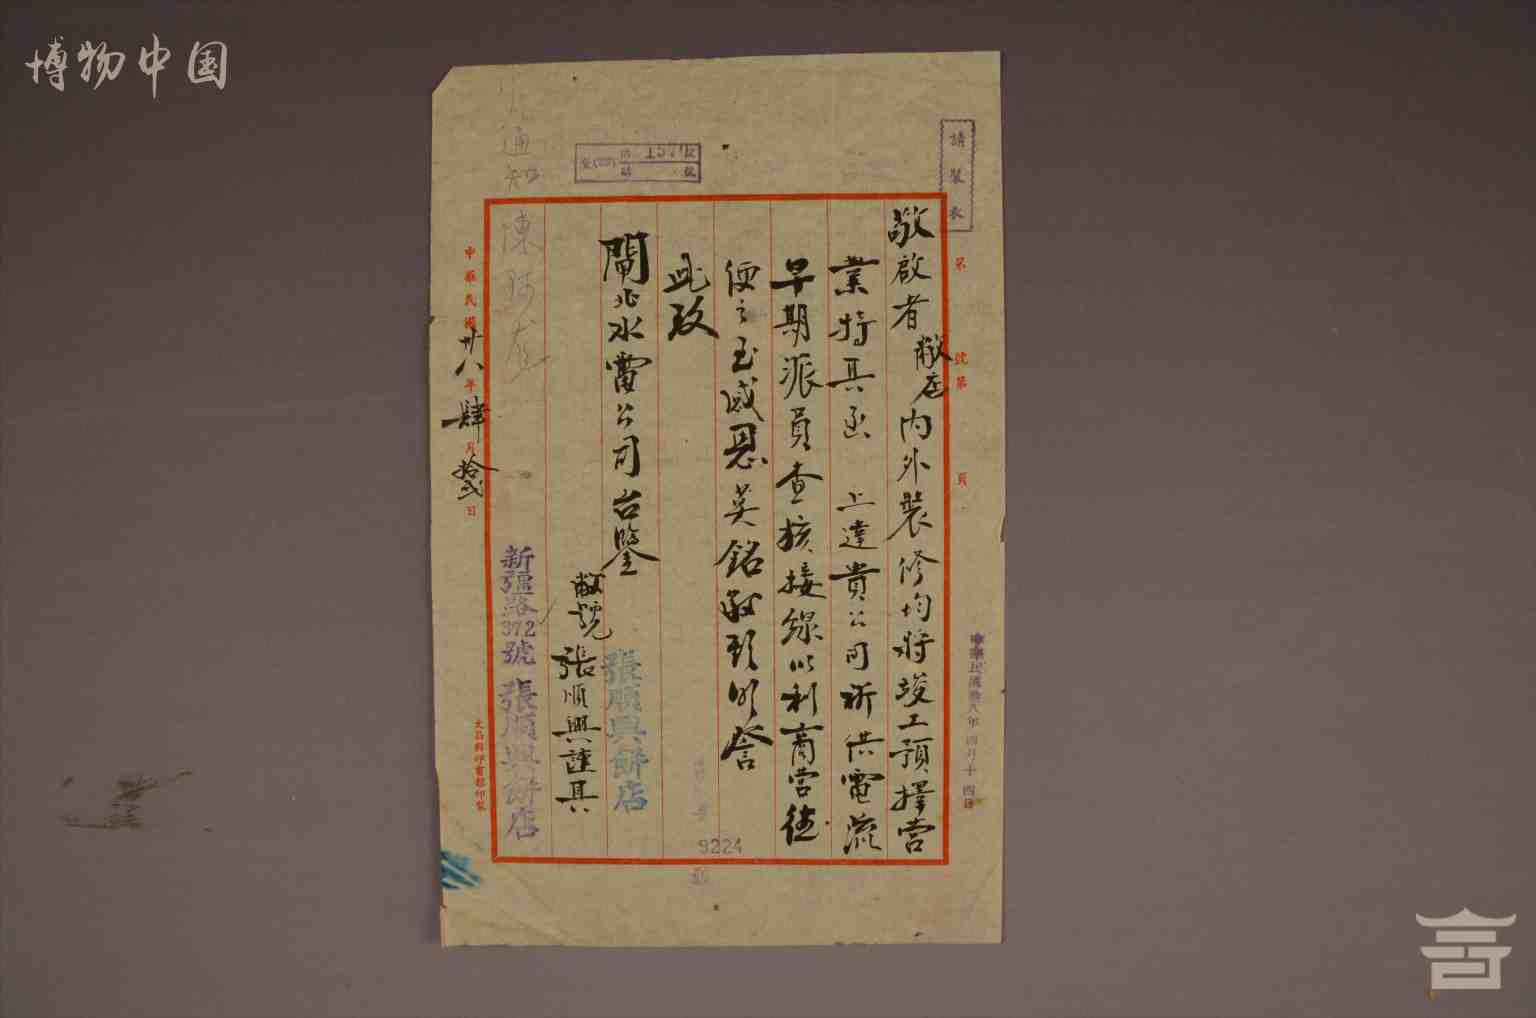 博物中国
請裝表
第 號 第 頁
中華民國卅八年四月十四日
敬啟者敝店內外裝修均將竣工預擇營
業特具函 上達貴公司祈供電流
早期派員查核接線以利商營
便之至感恩
此致
閘北水電公司台鑒
敝號 張順興謹具
張順興餅店
新疆路372號 張順興餅店
通知
中華民國卅八年肆月拾弍日
大昌興印書館印製
9224